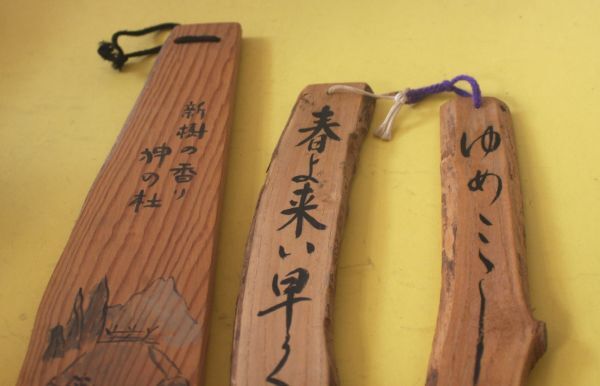 新樹の香り
神の杜
春よ来い早く
ゆめ